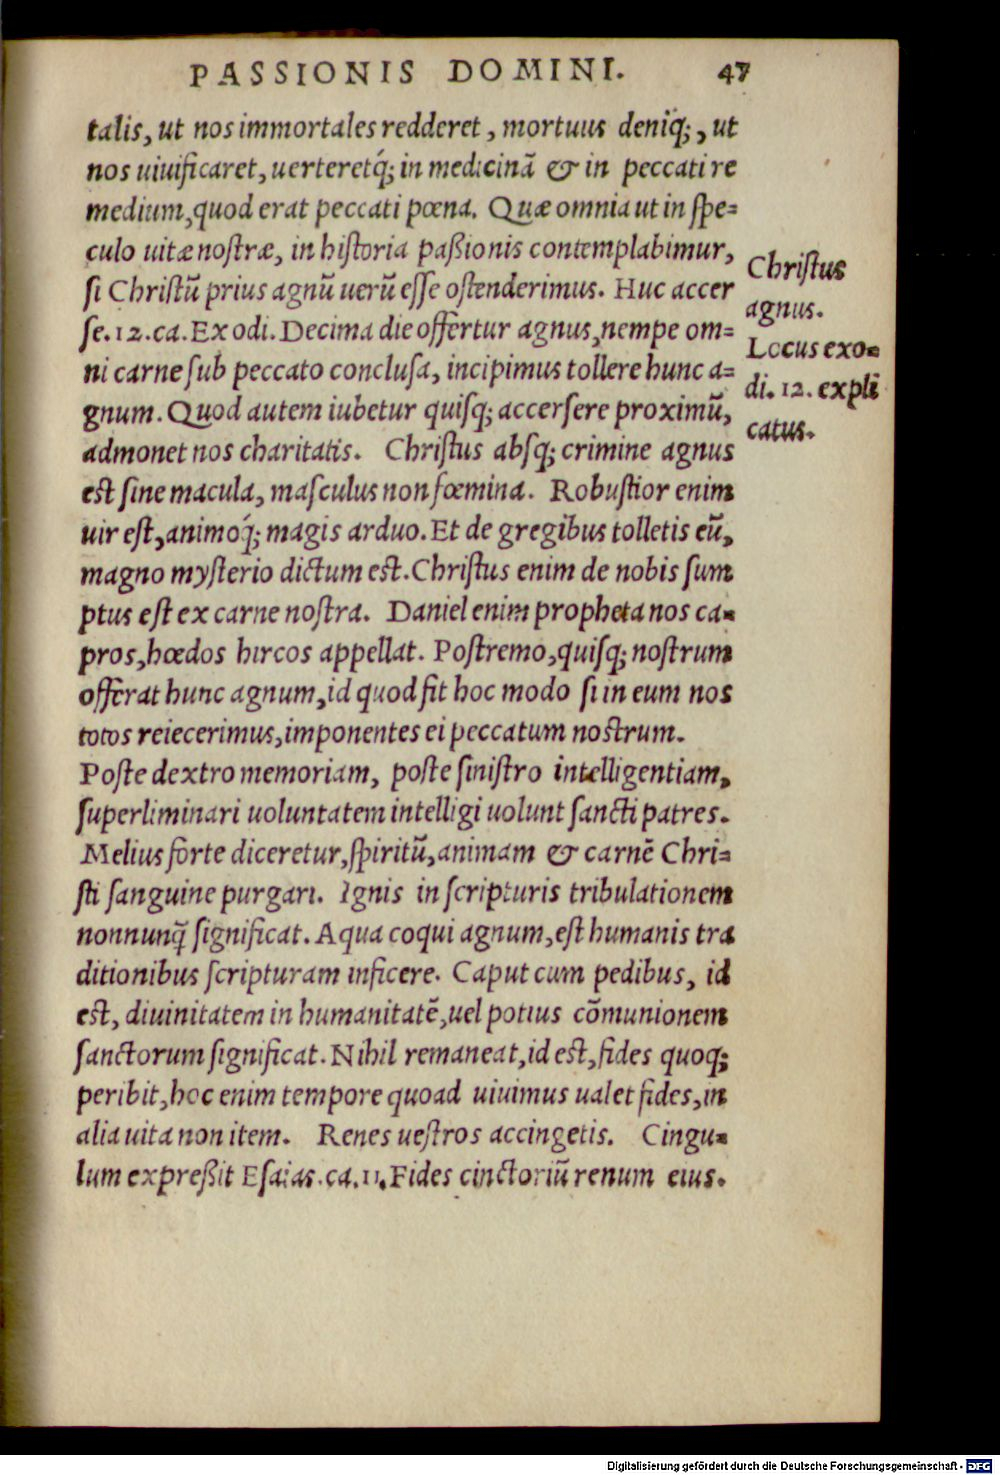 PASSIONIS DOMINI. 47
talis, ut nos immortales redderet, mortuus deniq;, ut
nos uiuificaret, uerteretq́; in medicinã & in peccati re
medium, quod erat peccati pœna. Quæ omnia ut in ſpe=
culo uitæ noſtræ, in hiſtoria paßionis contemplabimur,
ſi Chriſtũ prius agnũ uerũ eſſe oſtenderimus. Huc accer
ſe. 12. ca. Exodi. Decima die offertur agnus, nempe om=
ni carne ſub peccato concluſa, incipimus tollere hunc a=
gnum. Quod autem iubetur quiſq; accerſere proximũ,
admonet nos charitatis. Chriſtus abſq; crimine agnus
eſt ſine macula, maſculus non fœmina. Robuſtior enim
uir eſt, animoq́; magis arduo. Et de gregibus tolletis eũ,
magno myſterio dictum eſt. Chriſtus enim de nobis ſum
ptus eſt ex carne noſtra. Daniel enim propheta nos ca=
pros, hœdos hircos appellat. Poſtremo, quiſq; noſtrum
offerat hunc agnum, id quod fit hoc modo ſi in eum nos
totos reiecerimus, imponentes ei peccatum noſtrum.
Poſte dextro memoriam, poſte ſiniſtro intelligentiam,
ſuperliminari uoluntatem intelligi uolunt ſancti patres.
Melius forte diceretur, ſpiritũ, animam & carnẽ Chri=
ſti ſanguine purgari. Ignis in ſcripturis tribulationem
nonnunq̃ ſignificat. Aqua coqui agnum, eſt humanis tra
ditionibus ſcripturam inficere. Caput cum pedibus, id
eſt, diuinitatem in humanitatẽ, uel potius cõmunionem
ſanctorum ſignificat. Nihil remaneat, id eſt, fides quoq;
peribit, hoc enim tempore quoad uiuimus ualet fides, in
alia uita non item. Renes ueſtros accingetis. Cingu=
lum expreßit Eſaias. ca. 11. Fides cinctoriũ renum eius.
Chriſtus
agnus.
Locus exo=
di. 12. expli
catus.
Digitalisierung gefördert durch die Deutsche Forschungsgemeinschaft - DFG